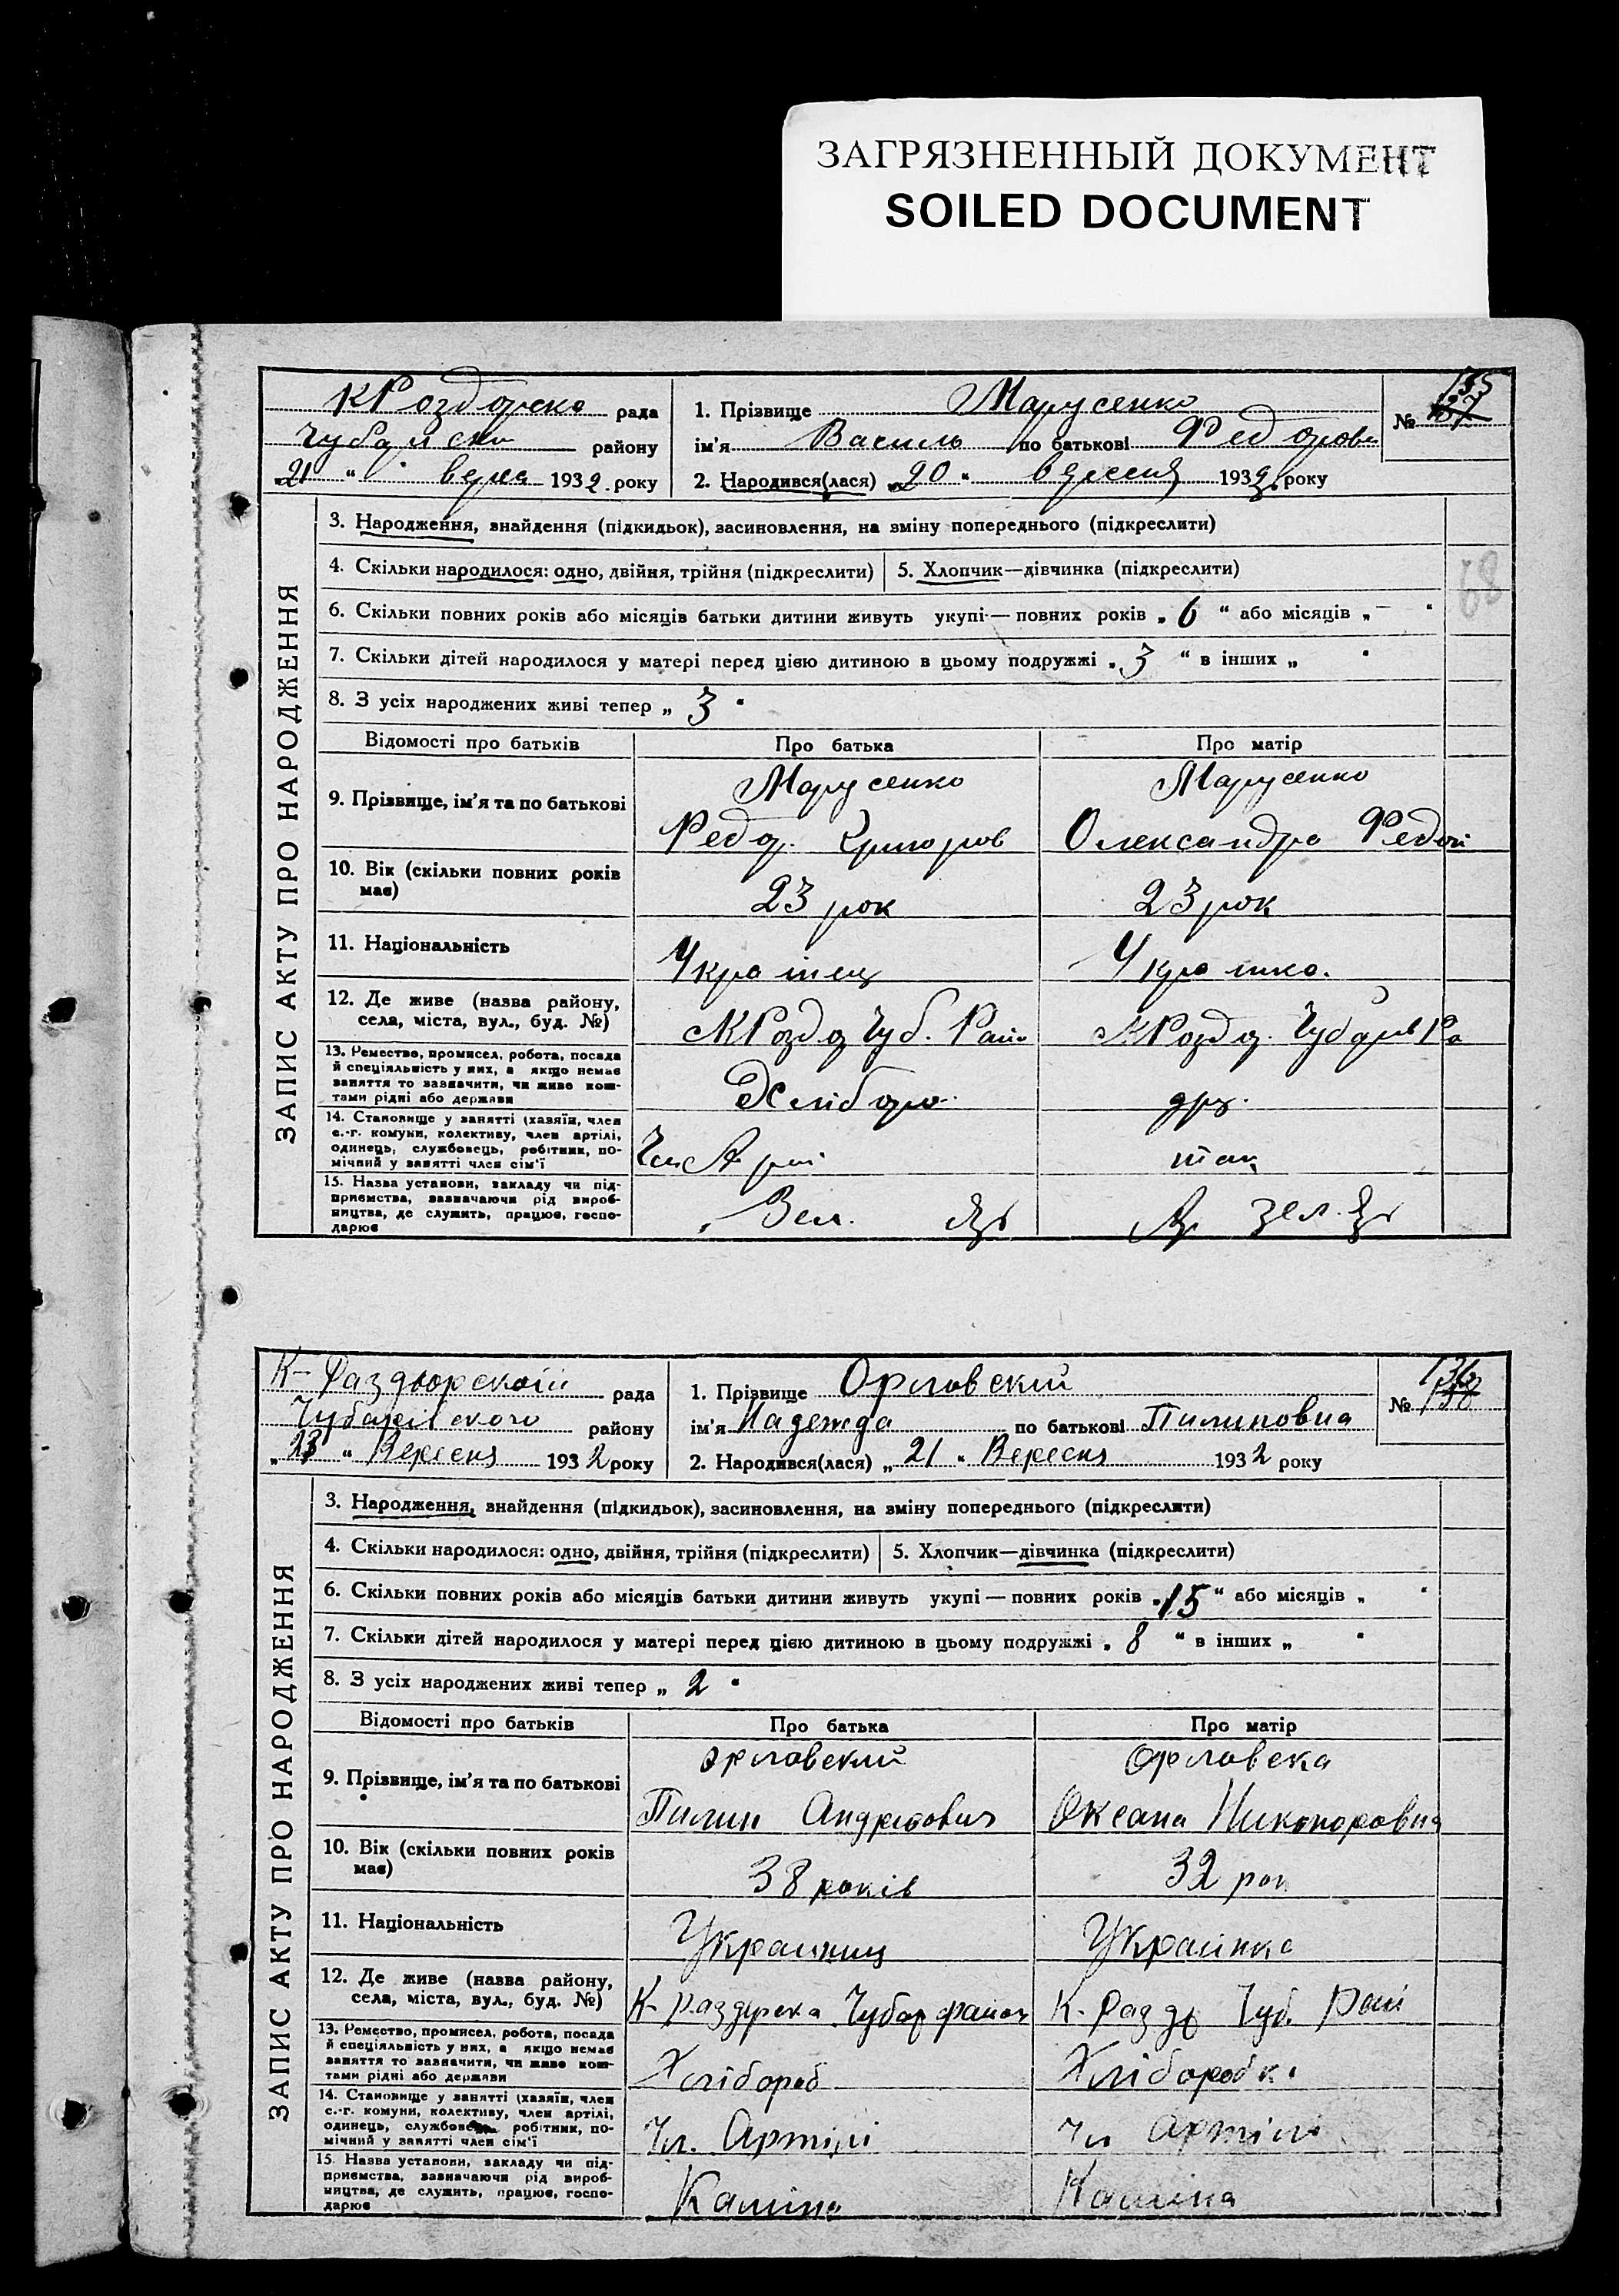 ЗАГРЯЗНЕННЫЙ ДОКУМЕНТ
SOILED DOCUMENT
КРоздорска рада
Чубарівськ району
„21“ верес 1932 року
1. Прізвище Марусенко
ім'я Василь по батькові Федоров
2. Народився(лася) „20“ вересня 1932 року
№ 135
ЗАПИС АКТУ ПРО НАРОДЖЕННЯ
3. Народження, знайдення (підкидьок), засиновлення, на зміну попереднього (підкреслити)
4. Скільки народилося: одно, двійня, трійня (підкреслити)
5. Хлопчик—дівчинка (підкреслити)
68
6. Скільки повних років або місяців батьки дитини живуть укупі — повних років „6“ або місяців „—“
7. Скільки дітей народилося у матері перед цією дитиною в цьому подружжі „3“ в інших „ “
8. З усіх народжених живі тепер „3“
Відомості про батьків
Про батька
Про матір
9. Прізвище, ім'я та по батькові
Марусенко
Федор. Григоров
Марусенко
Олександра Федор
10. Вік (скільки повних років
має)
23 рок
23 рок
11. Національність
Українец
Українко.
12. Де живе (назва району,
села, міста, вул., буд. №)
КРозд Чуб. Район
КРозд. Чубарів Ра
13. Ремество, промисел, робота, посада
й спеціяльність у них, а якщо немає
заняття то зазначити, чи живе кош-
тами рідні або держави
Хліборо.
14. Становище у занятті (хазяїн, член
с.-г. комуни, колективу, член артілі,
одинець, службовець, робітник, по-
мічний у занятті член сім'ї
Чл Арті
так
15. Назва установи, закладу чи під-
приємства, зазначаючи рід вироб-
ництва, де служить, працює, госпо-
дарює
К-Раздорскоїй рада
Чубарівского району
„23“ Вересня 1932 року
1. Прізвище Орловский
ім'я Надежда по батькові Пилиповна
2. Народився(лася) „21“ Вересня 1932 року
№ 136
138
ЗАПИС АКТУ ПРО НАРОДЖЕННЯ
3. Народження, знайдення (підкидьок), засиновлення, на зміну попереднього (підкреслити)
4. Скільки народилося: одно, двійня, трійня (підкреслити)
5. Хлопчик—дівчинка (підкреслити)
6. Скільки повних років або місяців батьки дитини живуть укупі — повних років „15“ або місяців „ “
7. Скільки дітей народилося у матері перед цією дитиною в цьому подружжі „8“ в інших „ “
8. З усіх народжених живі тепер „2“
Відомості про батьків
Про батька
Про матір
9. Прізвище, ім'я та по батькові
Орловский
Пилип Андрієвич
Орловска
Оксана Никоноровна
10. Вік (скільки повних років
має)
38 років
32 рок
11. Національність
Украинец
Українка
12. Де живе (назва району,
села, міста, вул., буд. №)
К-Раздорска Чубар район
К-Раздо Чуб. Рай
13. Ремество, промисел, робота, посада
й спеціяльність у них, а якщо немає
заняття то зазначити, чи живе кош-
тами рідні або держави
Хлібороб
Хліборобка
14. Становище у занятті (хазяїн, член
с.-г. комуни, колективу, член артілі,
одинець, службовець, робітник, по-
мічний у занятті член сім'ї
Чл. Артілі
Чл Артілі
15. Назва установи, закладу чи під-
приємства, зазначаючи рід вироб-
ництва, де служить, працює, госпо-
дарює
Калініна
Калініна